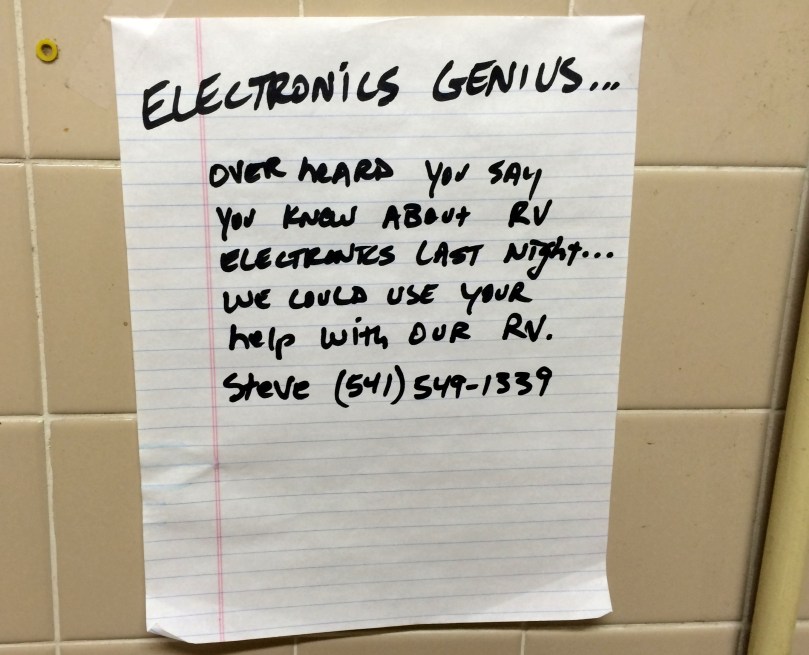 ELECTRONICS GENIUS...
OVER HEARD YOU SAY
YOU KNOW ABOUT RV
ELECTRONICS LAST NIGHT...
WE COULD USE YOUR
help with OUR RV.
Steve (541) 549-1339